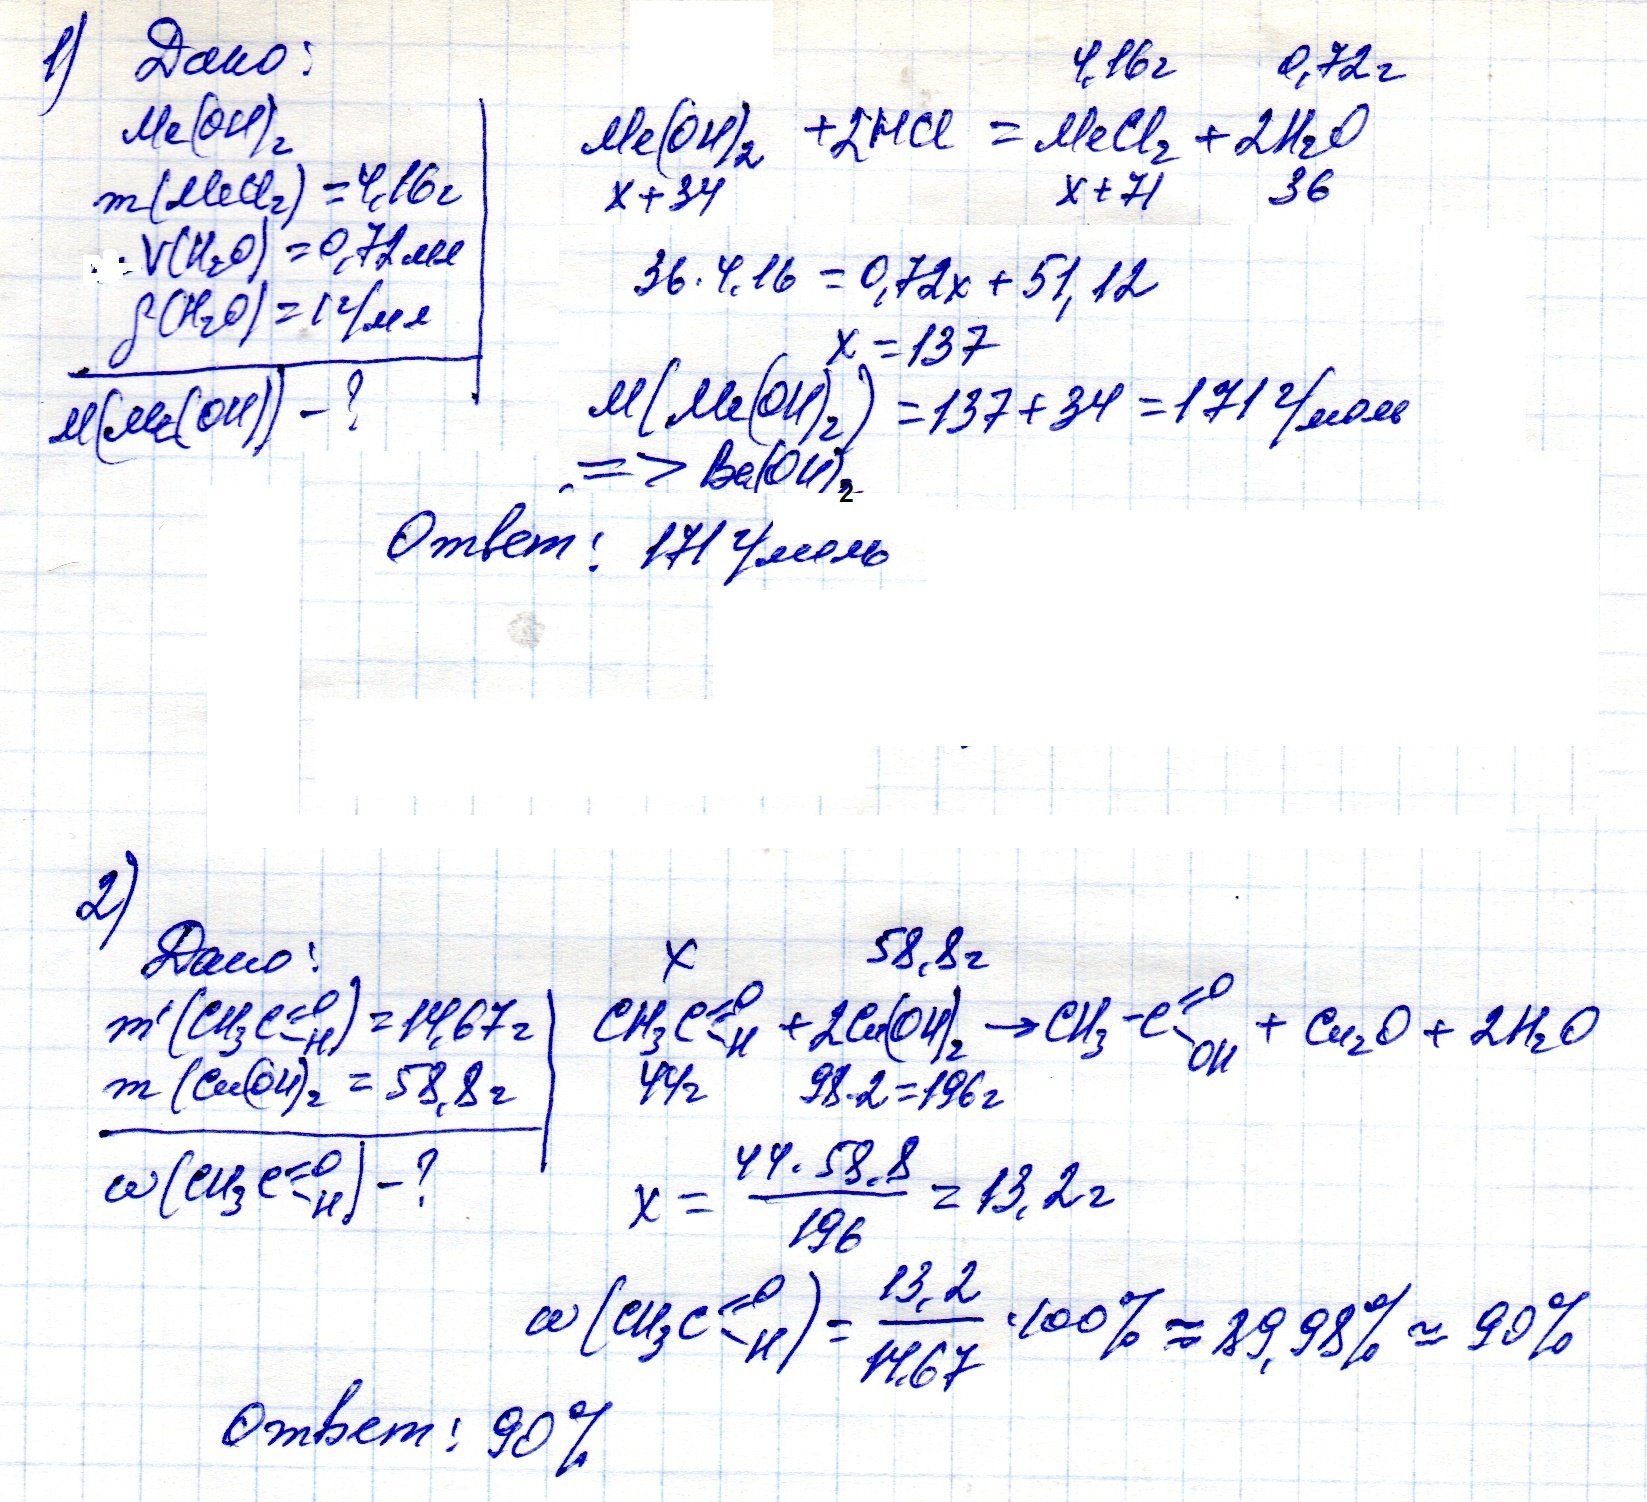 1) Дано:
Me(OH)₂
m(MeCl₂) = 4,16г
V(H₂O) = 0,72мл
ρ(H₂O) = 1г/мл
M(Me(OH)) - ?
4,16г 0,72г
Me(OH)₂ + 2HCl = MeCl₂ + 2H₂O
x+34 x+71 36
36·4,16 = 0,72x + 51,12
x = 137
M(Me(OH)₂) = 137+34 = 171г/моль
=> Ba(OH)₂
Ответ: 171г/моль
2)
Дано:
m'(CH₃C=O-H) = 14,67г
m(Cu(OH)₂ = 58,8г
ω(CH₃C=O-H) - ?
x 58,8г
CH₃C=O-H + 2Cu(OH)₂ → CH₃-C=O-OH + Cu₂O + 2H₂O
44г 98·2=196г
x = 44·58,8/196 = 13,2г
ω(CH₃C=O-H) = 13,2/14,67 ·100% ≈ 89,98% ≈ 90%
Ответ: 90%